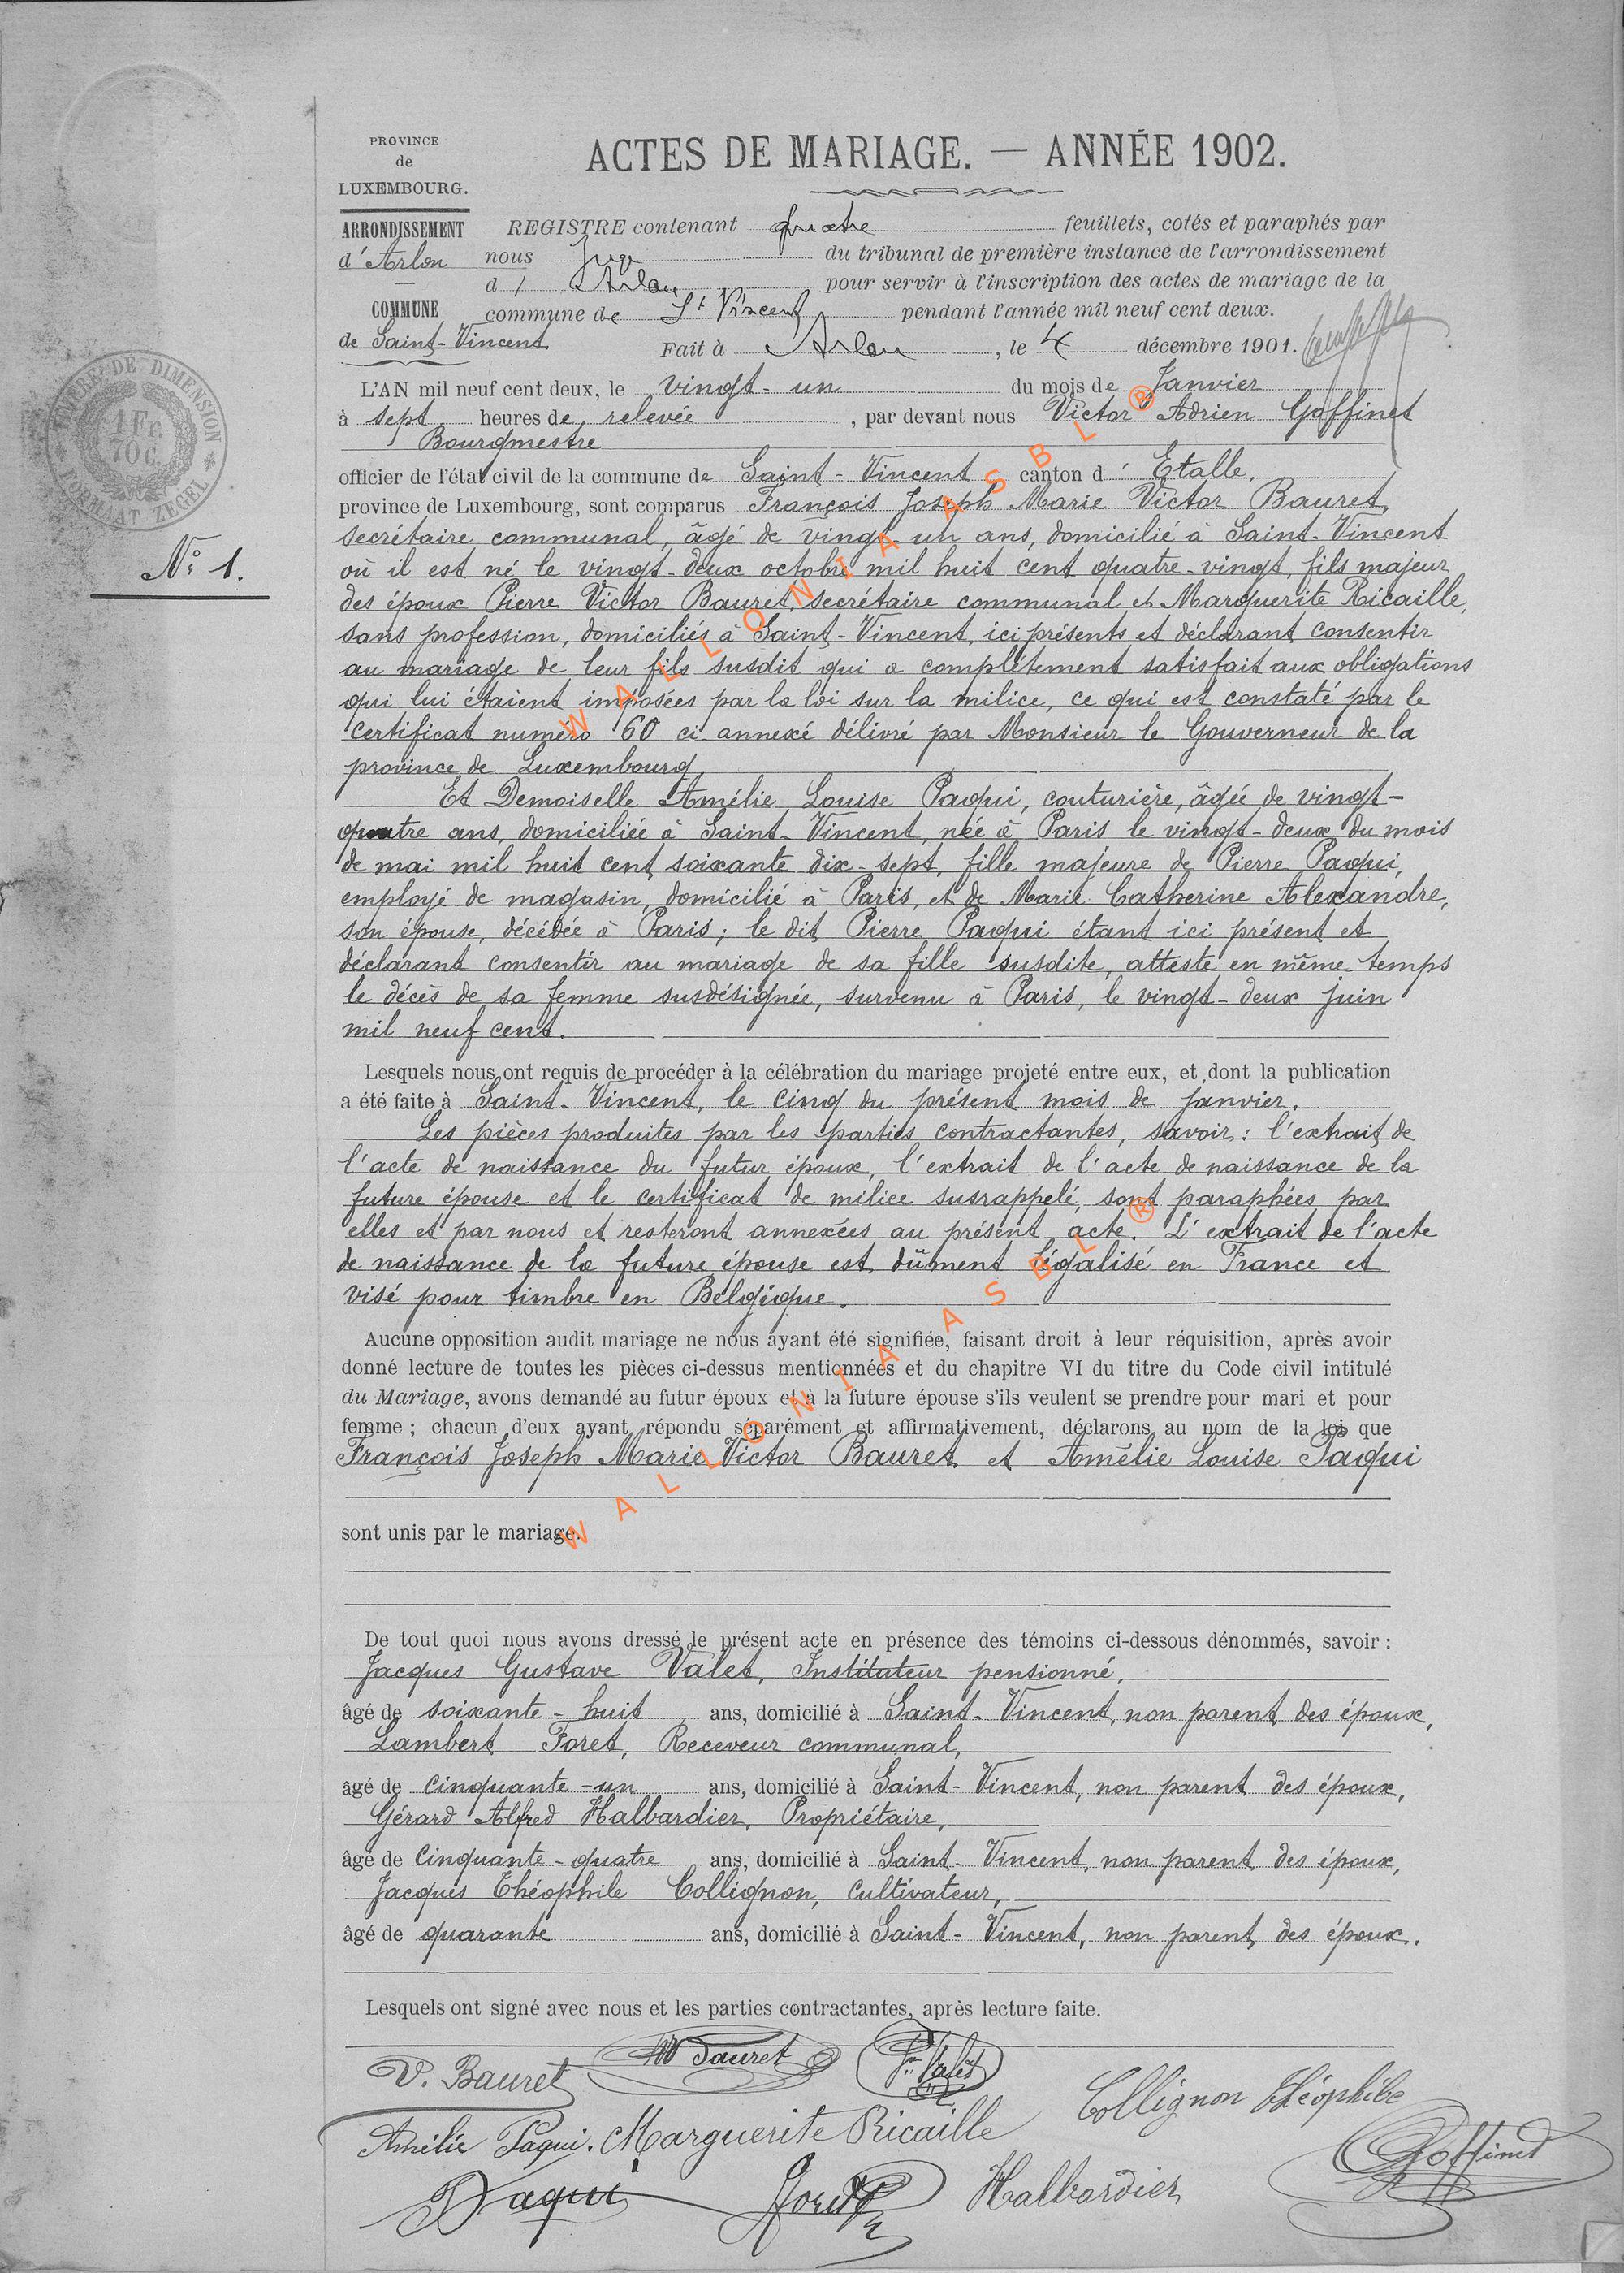 PROVINCE
de
LUXEMBOURG.
ARRONDISSEMENT
d'Arlon
COMMUNE
de Saint-Vincent
ACTES DE MARIAGE. — ANNÉE 1902.
REGISTRE contenant quatre feuillets, cotés et paraphés par
nous Juge du tribunal de première instance de l'arrondissement
d' Arlon pour servir à l'inscription des actes de mariage de la
commune de St Vincent pendant l'année mil neuf cent deux.
Fait à Arlon, le 4 décembre 1901.
TIMBRE DE DIMENSION
1 Fr.
70 C.
FORMAAT ZEGEL
N° 1.
L'AN mil neuf cent deux, le vingt-un du mois de Janvier
à sept heures de relevée, par devant nous Victor Adrien Goffinet
Bourgmestre
officier de l'état civil de la commune de Saint-Vincent canton d'Etalle,
province de Luxembourg, sont comparus François Joseph Marie Victor Bauret,
secrétaire communal, âgé de vingt-un ans, domicilié à Saint-Vincent
où il est né le vingt-deux octobre mil huit cent quatre-vingt, fils majeur
des époux Pierre Victor Bauret, secrétaire communal et Marguerite Ricaille,
sans profession, domiciliés à Saint-Vincent, ici présents et déclarant consentir
au mariage de leur fils susdit qui a complètement satisfait aux obligations
qui lui étaient imposées par la loi sur la milice, ce qui est constaté par le
certificat numéro 60 ci-annexé délivré par Monsieur le Gouverneur de la
province de Luxembourg
Et Demoiselle Amélie Louise Paqui, couturière, âgée de vingt-
quatre ans, domiciliée à Saint-Vincent, née à Paris le vingt-deux du mois
de mai mil huit cent soixante dix-sept, fille majeure de Pierre Paqui,
employé de magasin, domicilié à Paris, et de Marie Catherine Alexandre,
son épouse, décédée à Paris; le dit Pierre Paqui étant ici présent et
déclarant consentir au mariage de sa fille susdite, atteste en même temps
le décès de sa femme susdésignée, survenu à Paris, le vingt-deux juin
mil neuf cent.
Lesquels nous ont requis de procéder à la célébration du mariage projeté entre eux, et dont la publication
a été faite à Saint-Vincent, le cinq du présent mois de janvier.
Les pièces produites par les parties contractantes, savoir: l'extrait de
l'acte de naissance du futur époux, l'extrait de l'acte de naissance de la
future épouse et le certificat de milice susrappelé, sont paraphées par
elles et par nous et resteront annexées au présent acte. L'extrait de l'acte
de naissance de la future épouse est dûment légalisé en France et
visé pour timbre en Belgique.
Aucune opposition audit mariage ne nous ayant été signifiée, faisant droit à leur réquisition, après avoir
donné lecture de toutes les pièces ci-dessus mentionnées et du chapitre VI du titre du Code civil intitulé
du Mariage, avons demandé au futur époux et à la future épouse s'ils veulent se prendre pour mari et pour
femme; chacun d'eux ayant répondu séparément et affirmativement, déclarons au nom de la loi que
François Joseph Marie Victor Bauret et Amélie Louise Paqui
sont unis par le mariage.
De tout quoi nous avons dressé le présent acte en présence des témoins ci-dessous dénommés, savoir:
Jacques Gustave Valet, Instituteur pensionné,
âgé de soixante-huit ans, domicilié à Saint-Vincent, non parent des époux,
Lambert Foret, Receveur communal,
âgé de cinquante-un ans, domicilié à Saint-Vincent, non parent des époux,
Gérard Alfred Halbardier, Propriétaire,
âgé de cinquante-quatre ans, domicilié à Saint-Vincent, non parent des époux,
Jacques Théophile Collignon, cultivateur,
âgé de quarante ans, domicilié à Saint-Vincent, non parent des époux.
Lesquels ont signé avec nous et les parties contractantes, après lecture faite.
V. Bauret Bauret Valet Collignon Théophile
Amélie Paqui. Marguerite Ricaille Goffinet
Paqui Foret Halbardier
WALLONIA ASBL ®
WALLONIA ASBL ®